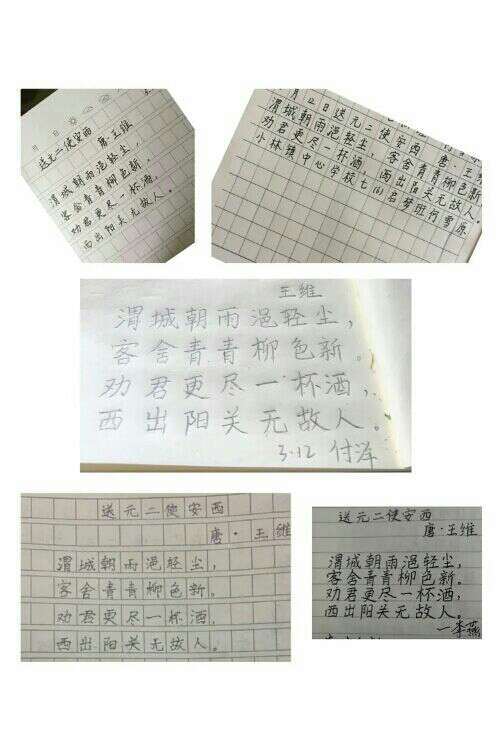 月 日
送元二使安西 唐·王维
渭城朝雨浥轻尘，
客舍青青柳色新。
劝君更尽一杯酒，
西出阳关无故人。
月12日送元二使安西 唐·王
渭城朝雨浥轻尘，客舍青青柳色新
劝君更尽一杯酒，西出阳关无故人。
小林镇中心学校七(6)启梦班何雪原
王维
渭城朝雨浥轻尘，
客舍青青柳色新。
劝君更尽一杯酒，
西出阳关无故人。
3.12 付泽
送元二使安西
唐·王维
渭城朝雨浥轻尘，
客舍青青柳色新。
劝君更尽一杯酒，
西出阳关无故人。
送元二使安西
唐·王维
渭城朝雨浥轻尘，
客舍青青柳色新。
劝君更尽一杯酒，
西出阳关无故人。
—李燕